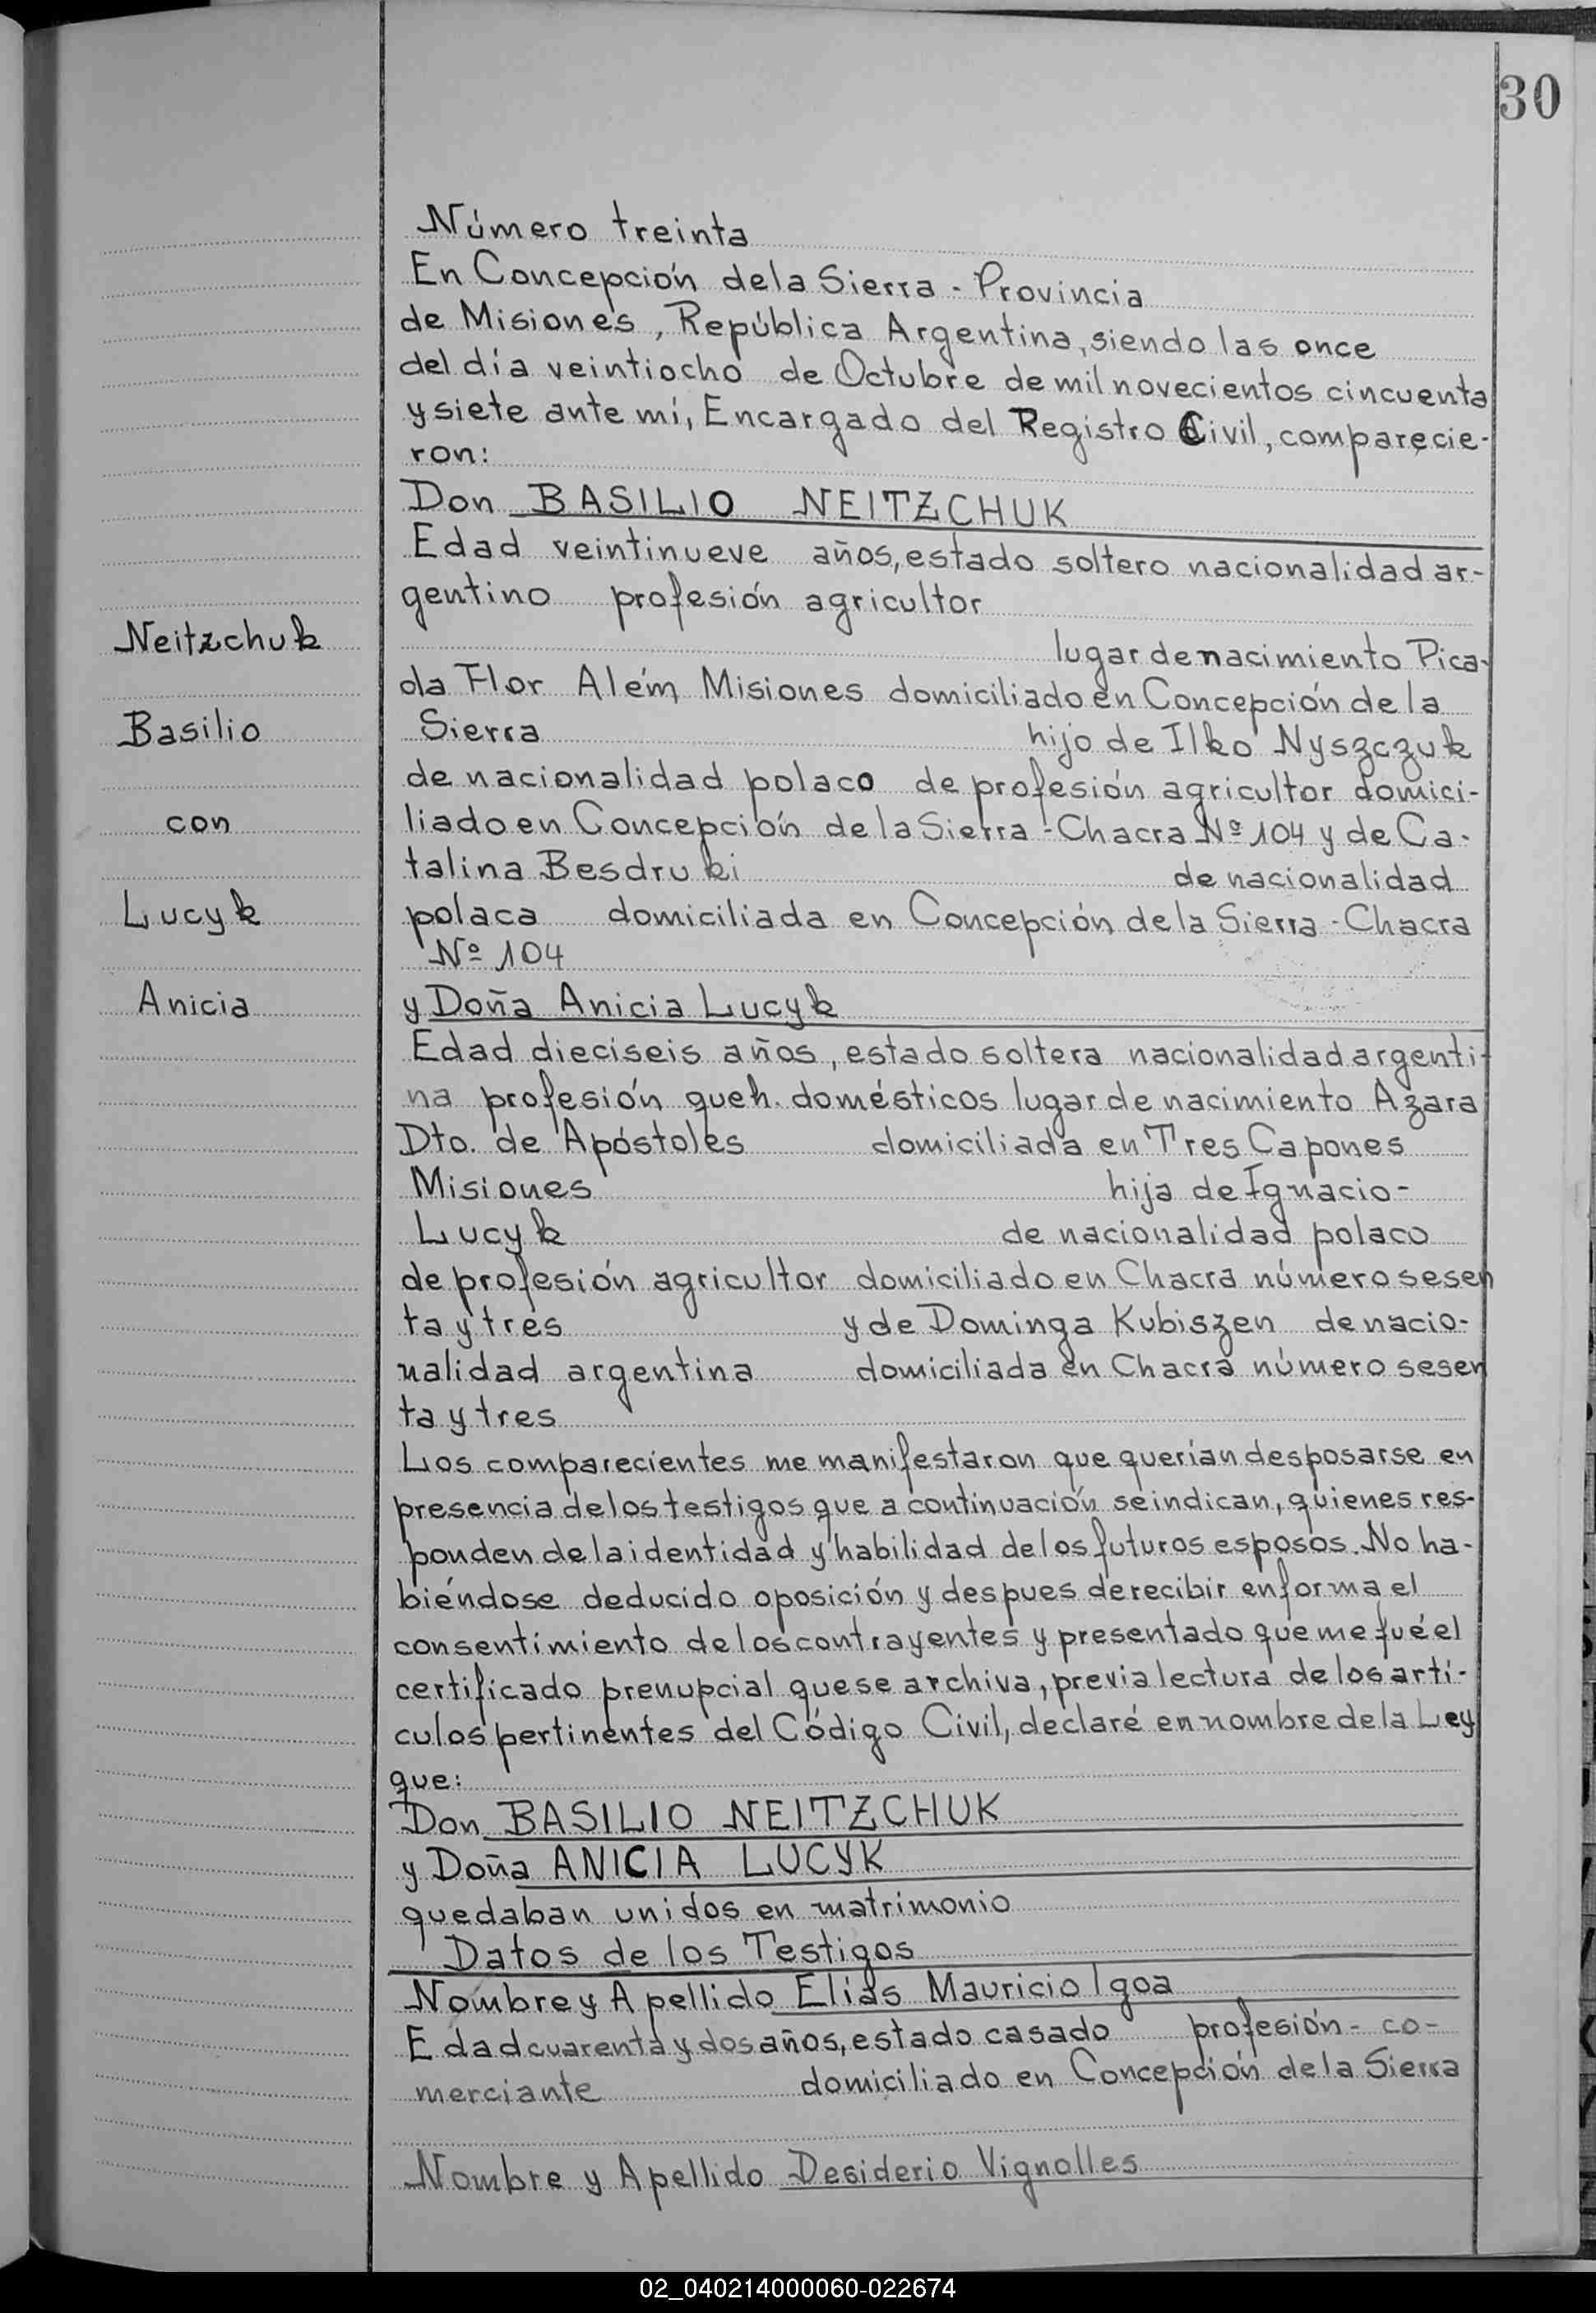 30
Número treinta
En Concepción de la Sierra - Provincia
de Misiones, República Argentina, siendo las once
del día veintiocho de Octubre de mil novecientos cincuenta
y siete ante mí, Encargado del Registro Civil, comparecie-
ron:
Don BASILIO NEITZCHUK
Edad veintinueve años, estado soltero nacionalidad ar-
gentino profesión agricultor
Neitzchuk
lugar de nacimiento Pica-
da Flor Além, Misiones domiciliado en Concepción de la
Basilio
Sierra hijo de Ilko Nyszczuk
de nacionalidad polaco de profesión agricultor domici-
con
liado en Concepción de la Sierra - Chacra Nº 104 y de Ca-
talina Besdruki de nacionalidad
Lucyk
polaca domiciliada en Concepción de la Sierra - Chacra
Nº 104
Anicia
y Doña Anicia Lucyk
Edad dieciseis años, estado soltera nacionalidad argenti-
na profesión queh. domésticos lugar de nacimiento Azara
Dto. de Apóstoles domiciliada en Tres Capones
Misiones hija de Ignacio-
Lucyk de nacionalidad polaco
de profesión agricultor domiciliado en Chacra número sesen
ta y tres y de Dominga Kubiszen de nacio-
nalidad argentina domiciliada en Chacra número sesen
ta y tres
Los comparecientes me manifestaron que querían desposarse en
presencia de los testigos que a continuación se indican, quienes res-
ponden de la identidad y habilidad de los futuros esposos. No ha-
biéndose deducido oposición y despues de recibir en forma el
consentimiento de los contrayentes y presentado que me fué el
certificado prenupcial que se archiva, previa lectura de los artí-
culos pertinentes del Código Civil, declaré en nombre de la Ley
que:
Don BASILIO NEITZCHUK
y Doña ANICIA LUCYK
quedaban unidos en matrimonio
Datos de los Testigos
Nombre y Apellido Elías Mauricio Igoa
Edad cuarenta y dos años, estado casado profesión - co-
merciante domiciliado en Concepción de la Sierra
Nombre y Apellido Desiderio Vignolles
02_040214000060-022674